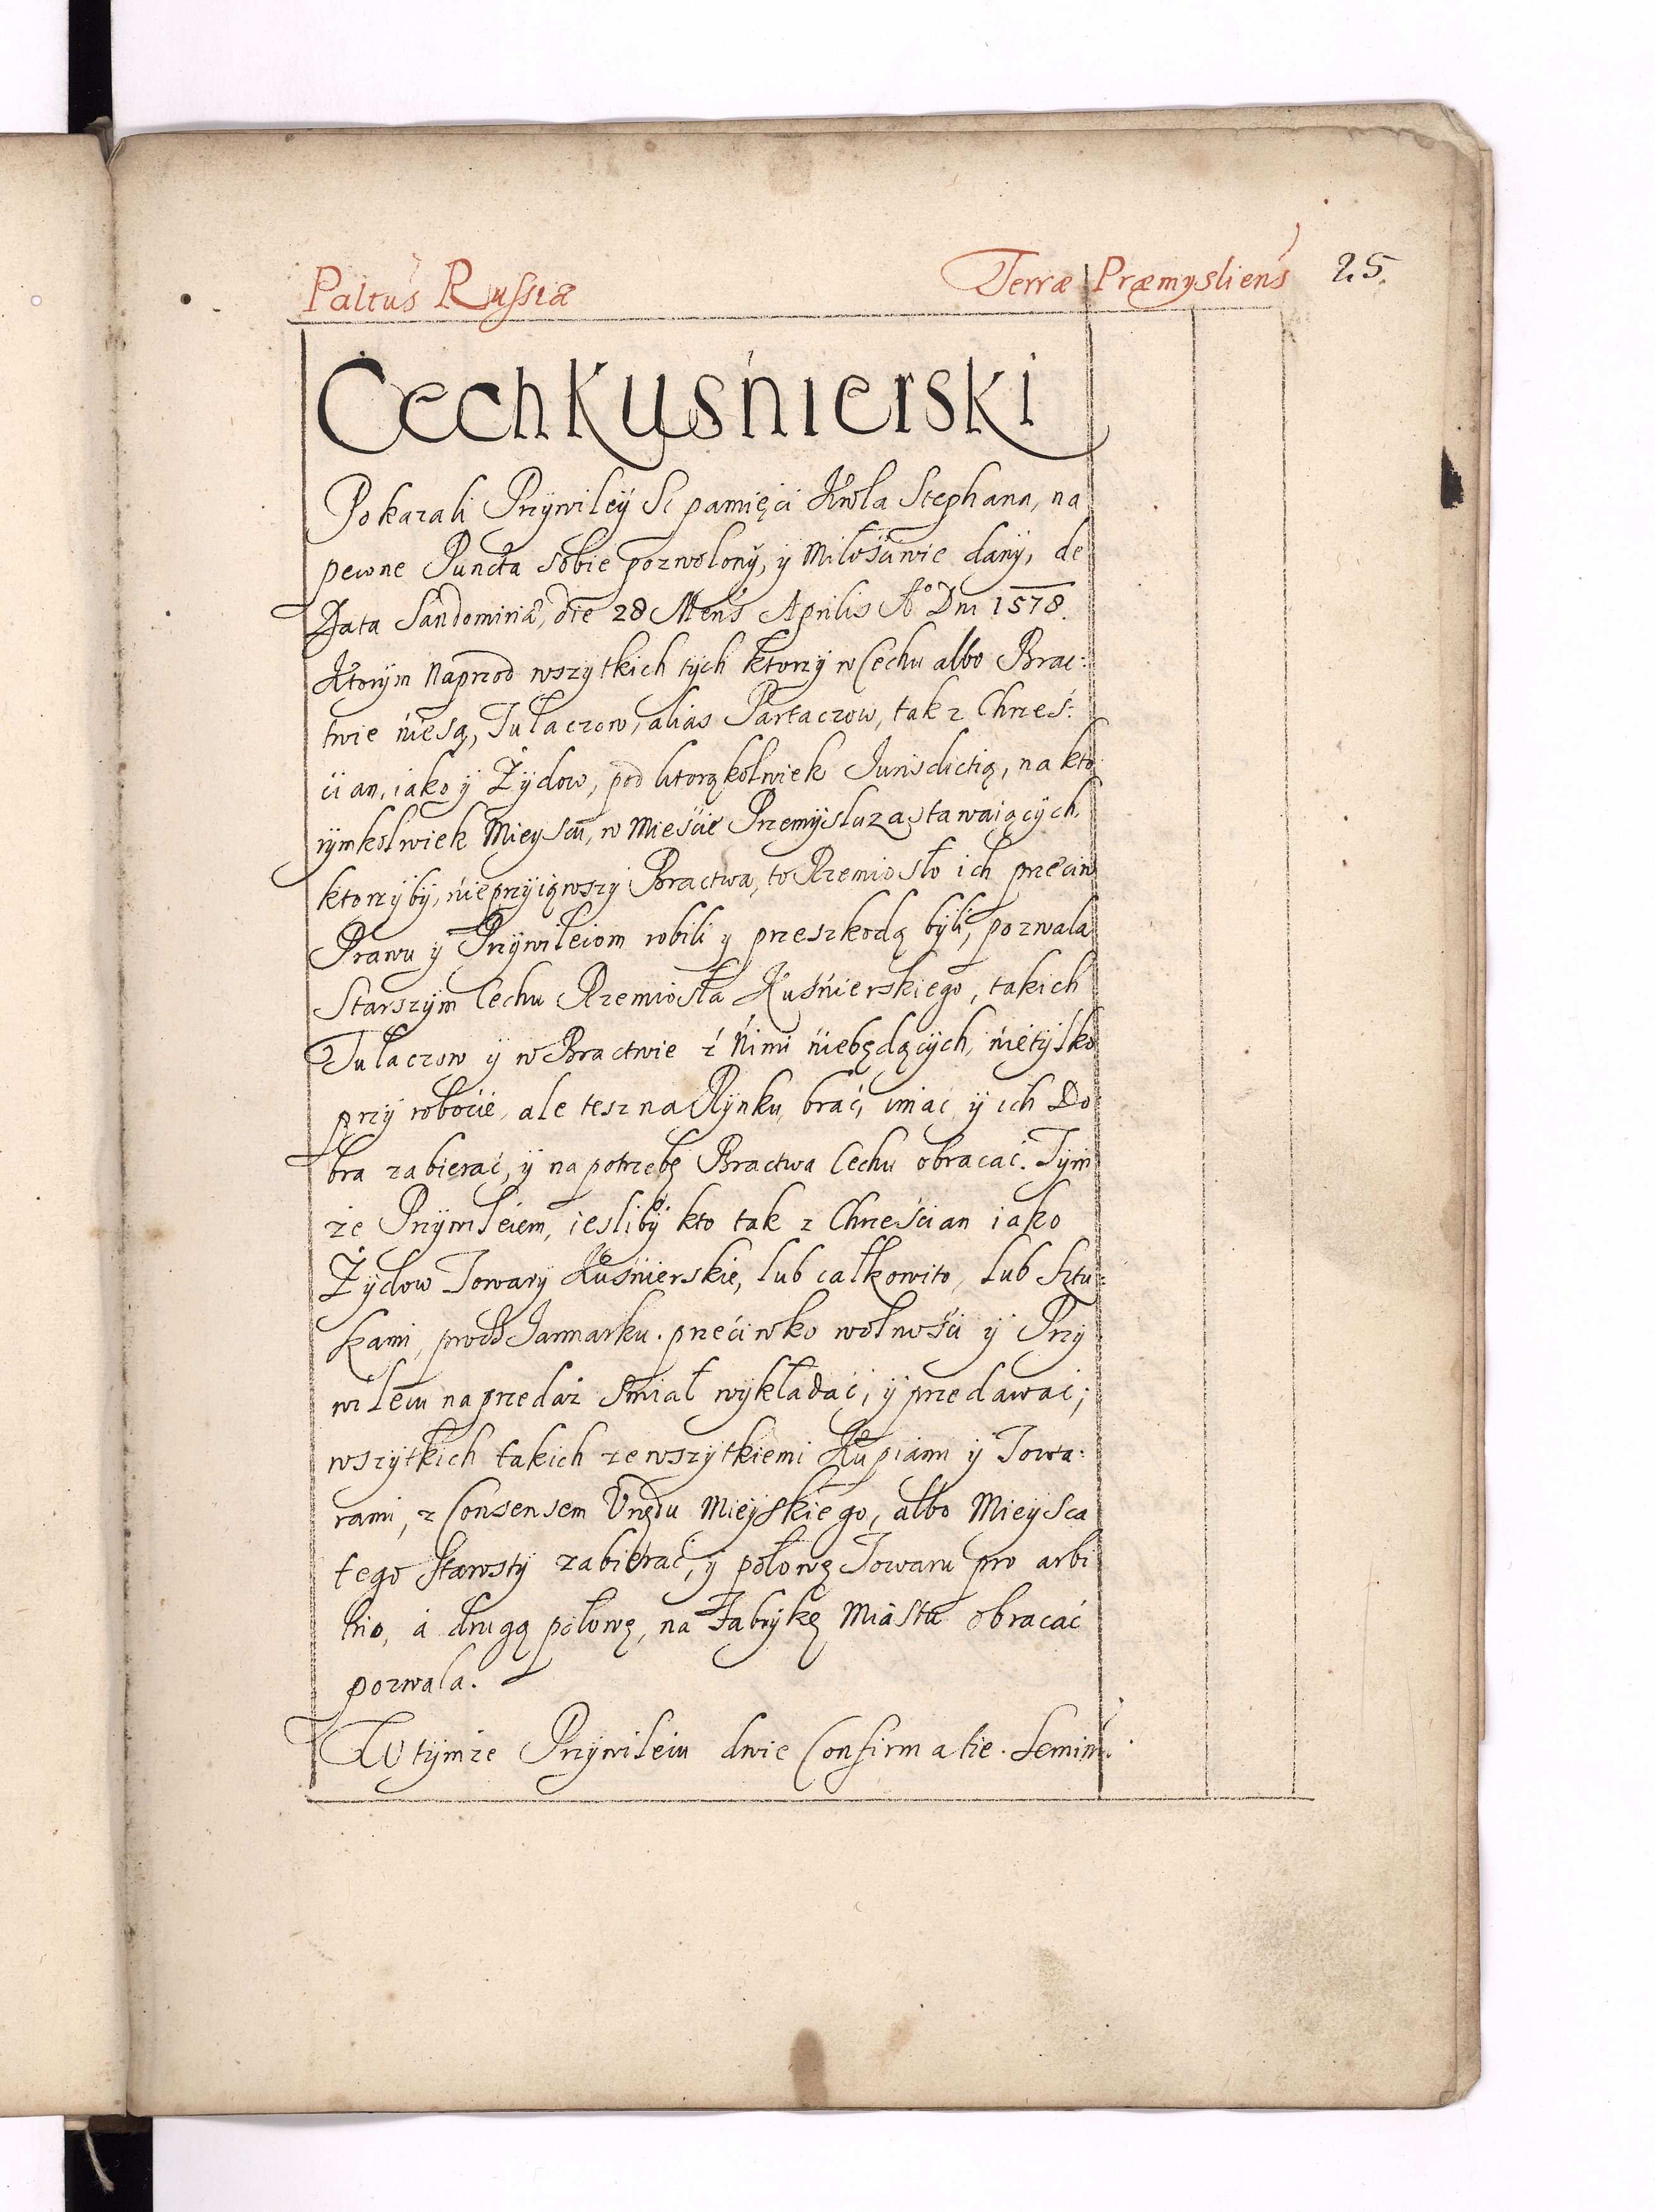 Paltus Russiæ
Terræ Præmysliens
25.
Cech Kuśnierski
Pokazali Przywiley S. pamięci Krola Stephana, na
pewne Puncta sobie pozwolony, y Miłościwie dany, de
Data Sandomiriæ, die 28 Mens Aprilis Aº Dni 1578.
Ktorym naprzod wszytkich tych ktorzy w Cechu albo Brac:
twie niesą, Tułaczow, alias Partaczow, tak z Chrześ:
cian, iako y Żydow, pod ktorąkolwiek Iurisdictią, na kto
rymkolwiek Mieyscu, w Mieście Przemyslu zastawaiących,
ktorzyby, nieprzyiąwszy Bractwa, to Rzemiosło ich przeciw
Prawu y Przywileiom robili y przeszkodą byli, pozwala
Starszym Cechu Rzemiosła Kuśnierskiego, takich
Tułaczow y w Bractwie z Nimi niebędących, nietylko
przy robocie, ale tesz na Rynku, brać, imać y ich Do
bra zabierać, y na potrzebę Bractwa Cechu obracać. Tym
że Przywileiem, iesliby kto tak z Chrześcian iako
Żydow Towary Kuśnierskie, lub całkowito, lub sztu:
kami, procz Iarmarku. przeciwko wolności y Przy
wileiu na przedaż smiał wykładać, y przedawać;
wszytkich takich ze wszytkiemi Kupiami y Towa:
rami, z Consensem Urzędu Mieyskiego, albo Mieysca
tego Starosty zabierać, y połowę Towaru pro arbi
trio, a drugą połowę, na Fabrykę Miasta obracać
pozwala.
W tymże Przywileiu dwie Confirmatie.